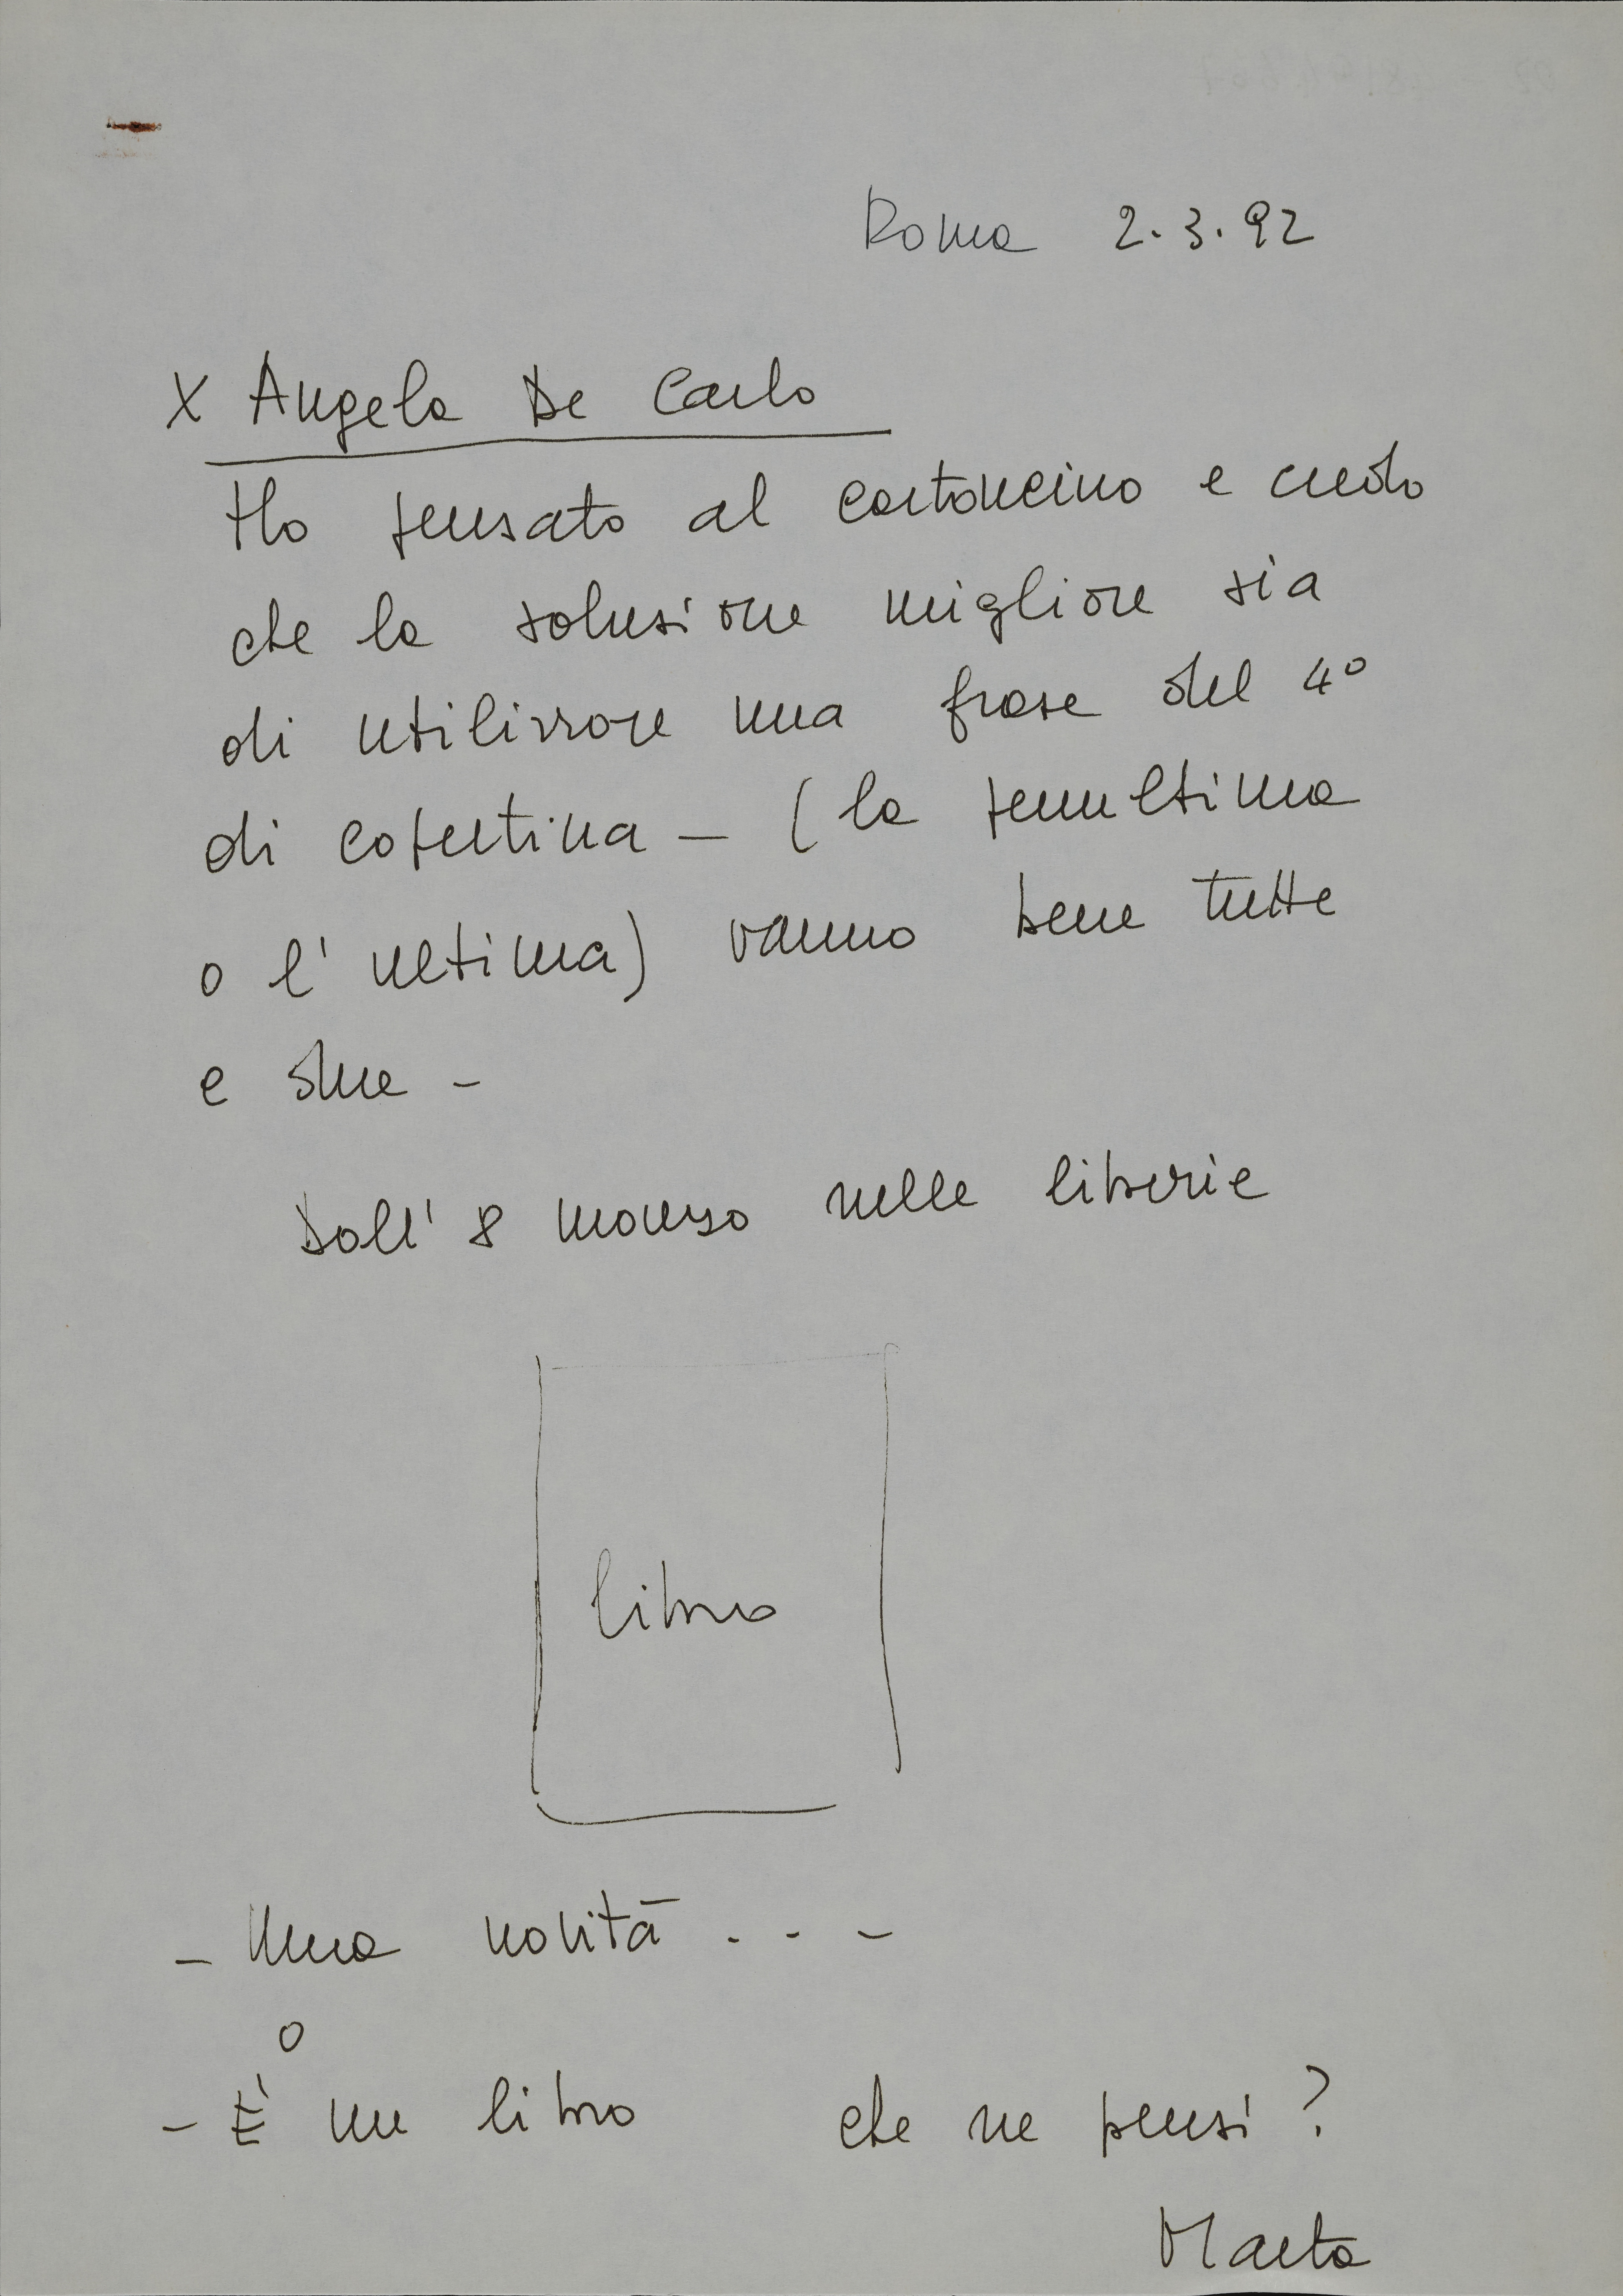 Roma 2.3.92
X Angela De Carlo
Ho pensato al cartoncino e credo
che la soluzione migliore sia
di utilizzare una frase del 4°
di copertina – (la penultima
o l'ultima) vanno bene tutte
e due –
Dall' 8 marzo nelle librerie
libro
– Una novità . . –
o
– È un libro che ne pensi ?
Marta